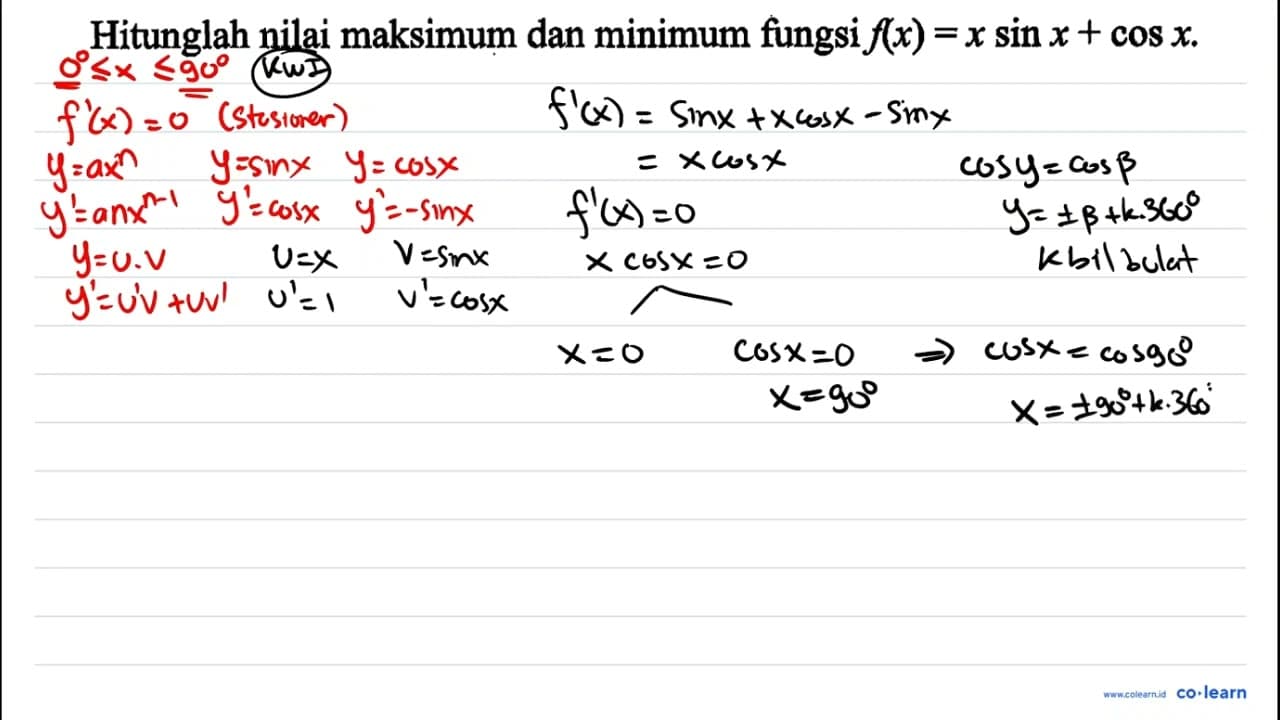 Hitunglah nilai maksimum dan minimum fungsi f(x) = x sin x + cos x.
0° ≤ x ≤ 90° KWI
f'(x) = 0 (Stasioner)
y=axⁿ y=sinx y=cosx
y'=anxⁿ⁻¹ y'=cosx y'=-sinx
y=U.V U=x V=sinx
y'=U'V+UV' U'=1 V'=cosx
f'(x) = sinx + x cosx - sinx
= x cosx
f'(x)=0
x cosx=0
x=0 cosx=0 ⇒ cosx = cos90°
x=90° x = ±90°+k.360°
cosy=cosβ
y=±β+k.360°
k bil bulat
www.colearn.id co·learn